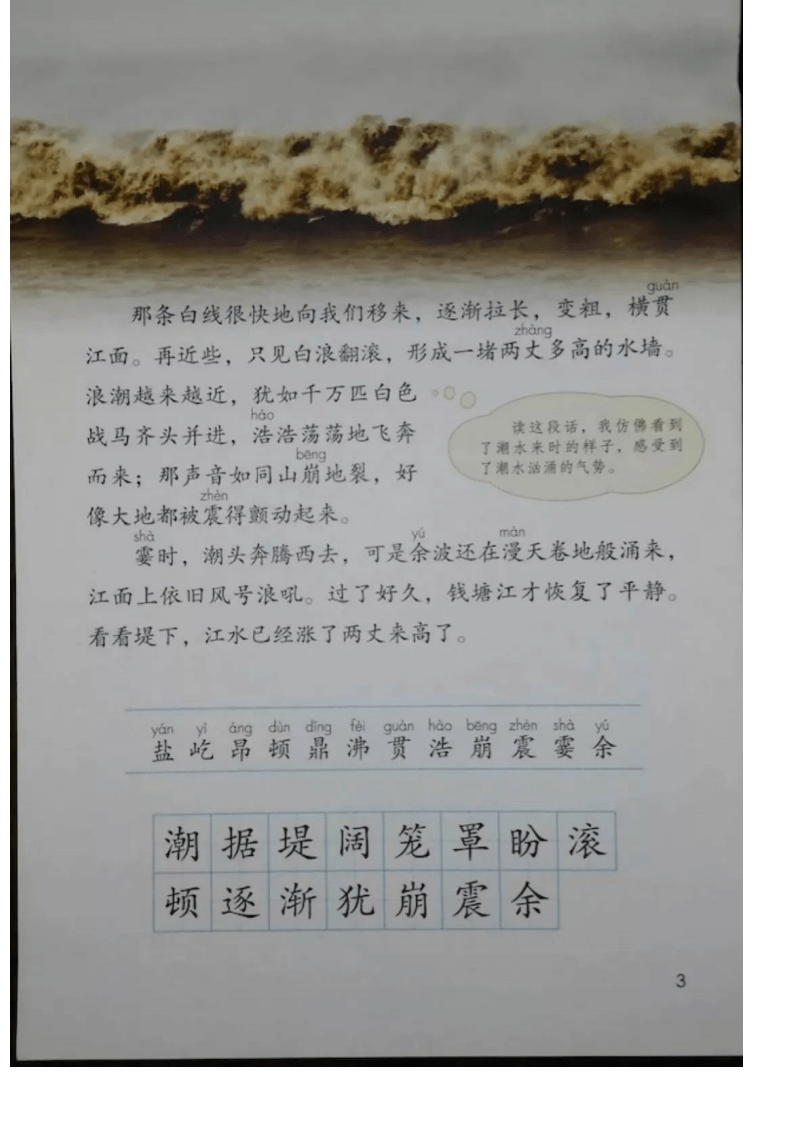 guàn
那条白线很快地向我们移来，逐渐拉长，变粗，横贯
zhàng
江面。再近些，只见白浪翻滚，形成一堵两丈多高的水墙。
浪潮越来越近，犹如千万匹白色
hào
战马齐头并进，浩浩荡荡地飞奔
bēng
而来；那声音如同山崩地裂，好
zhèn
像大地都被震得颤动起来。
读这段话，我仿佛看到
了潮水来时的样子，感受到
了潮水汹涌的气势。
shà yú màn
霎时，潮头奔腾西去，可是余波还在漫天卷地般涌来，
江面上依旧风号浪吼。过了好久，钱塘江才恢复了平静。
看看堤下，江水已经涨了两丈来高了。
yán yì áng dùn dǐng fèi guàn hào bēng zhèn shà yú
盐 屹 昂 顿 鼎 沸 贯 浩 崩 震 霎 余
潮 据 堤 阔 笼 罩 盼 滚
顿 逐 渐 犹 崩 震 余
3